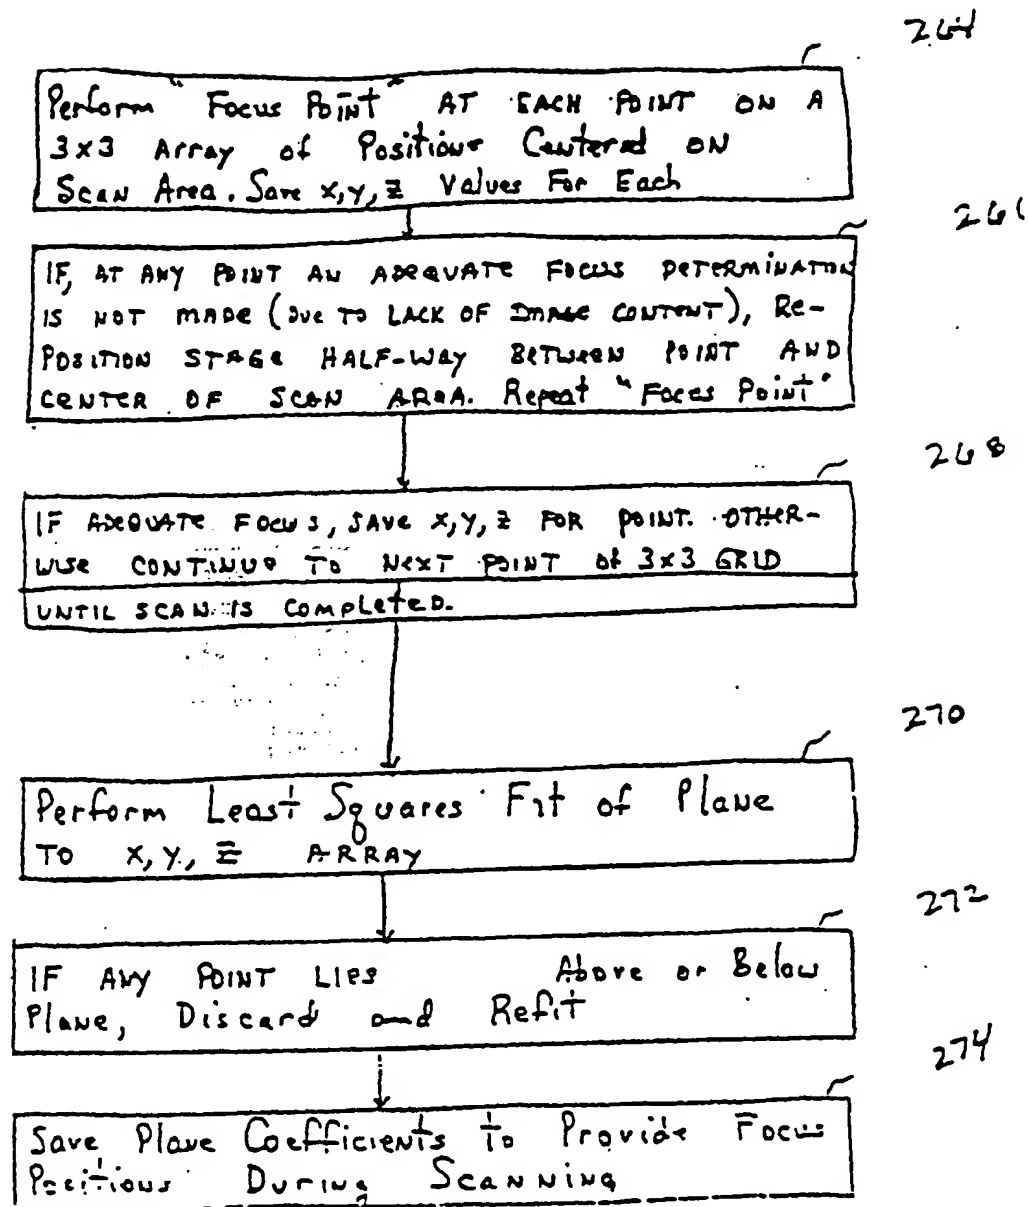 264
Perform "Focus Point" AT EACH POINT ON A
3x3 Array of Positions Centered ON
Scan Area. Save x,y,z Values For Each
266
IF, AT ANY POINT AN ADEQUATE FOCUS DETERMINATION
IS NOT MADE (DUE TO LACK OF IMAGE CONTENT), RE-
POSITION STAGE HALF-WAY BETWEEN POINT AND
CENTER OF SCAN AREA. Repeat "Focus Point"
268
IF ADEQUATE FOCUS, SAVE x,y,z FOR POINT. OTHER-
WISE CONTINUE TO NEXT POINT of 3x3 GRID
UNTIL SCAN IS COMPLETED.
270
Perform Least Squares Fit of Plane
TO x,y,z ARRAY
272
IF ANY POINT LIES Above or Below
Plane, Discard and Refit
274
Save Plane Coefficients To Provide Focus
Positions During Scanning